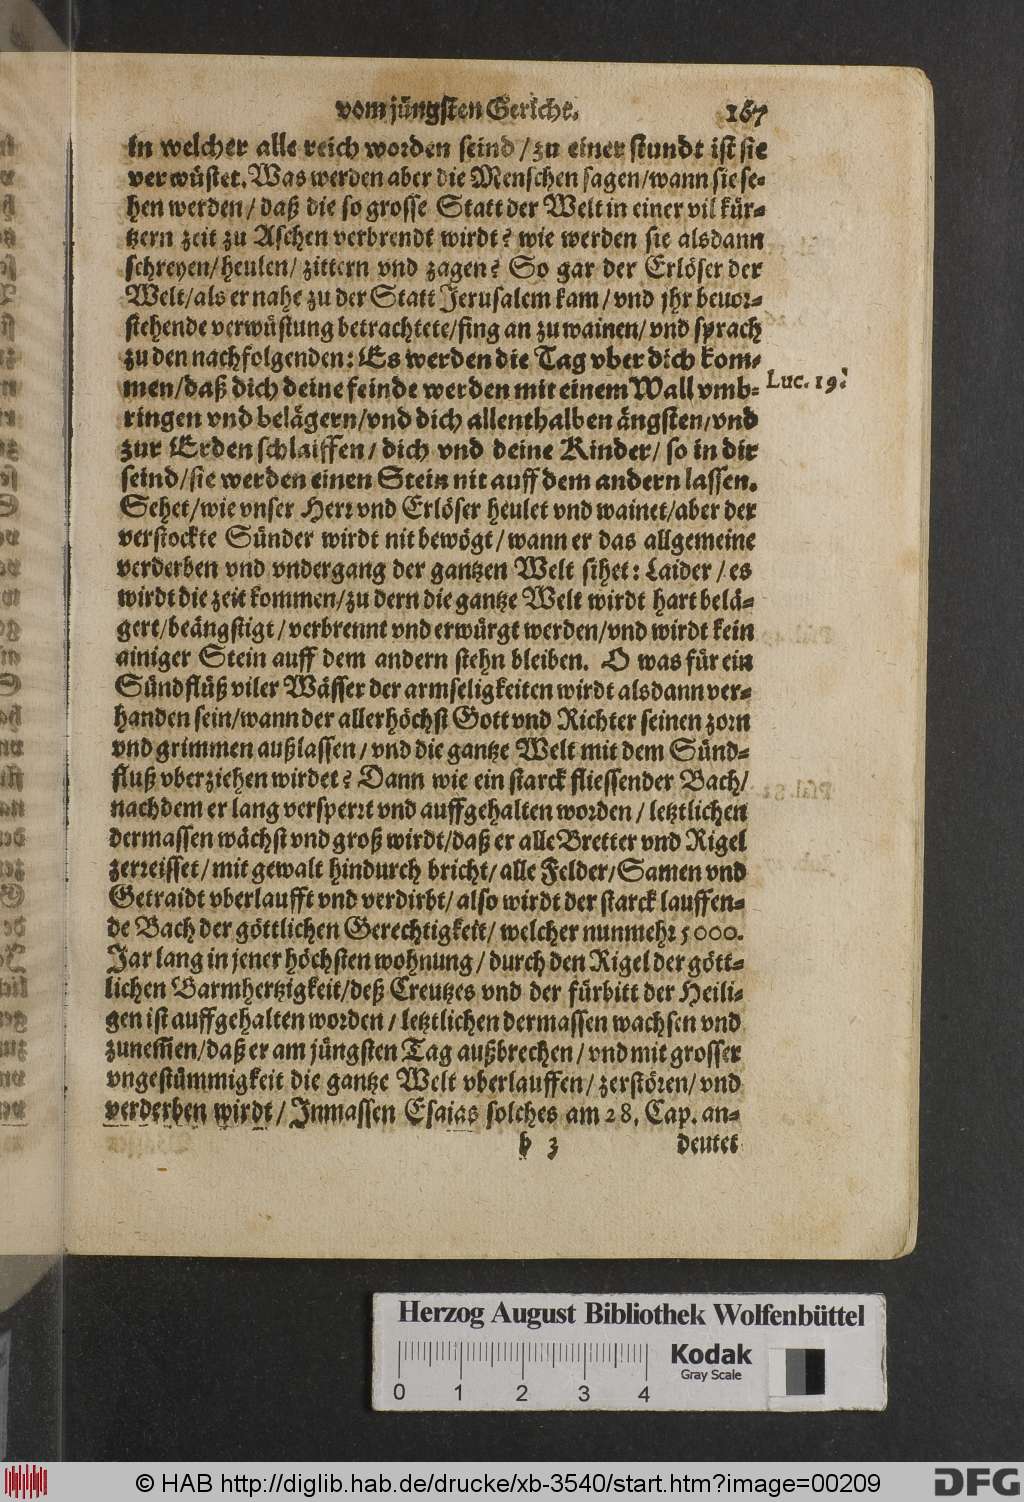 vom jüngsten Gericht. 167
in welcher alle reich worden seind / zu einer stundt ist sie
verwüstet. Was werden aber die Menschen sagen/wann sie se-
hen werden / daß die so grosse Statt der Welt in einer vil kür-
tzern zeit zu Aschen verbrendt wirdt? wie werden sie alsdann
schreyen/heulen/ zittern vnd zagen? So gar der Erlöser der
Welt/als er nahe zu der Statt Jerusalem kam / vnd jhr beuor-
stehende verwüstung betrachtete/fing an zu wainen/ vnd sprach
zu den nachfolgenden: Es werden die Tag vber dich kom-
men/daß dich deine feinde werden mit einem Wall vmb- Luc. 19.
ringen vnd belägern/vnd dich allenthalben ängsten/vnd
zur Erden schlaiffen / dich vnd deine Kinder / so in dir
seind/sie werden einen Stein nit auff dem andern lassen.
Sehet/wie vnser Herr vnd Erlöser heulet vnd wainet/aber der
verstockte Sünder wirdt nit bewögt / wann er das allgemeine
verderben vnd vndergang der gantzen Welt sihet: Laider / es
wirdt die zeit kommen/zu dern die gantze Welt wirdt hart belä-
gert/beängstigt / verbrennt vnd erwürgt werden/vnd wirdt kein
ainiger Stein auff dem andern stehn bleiben. O was für ein
Sündflüß viler Wässer der armseligkeiten wirdt alsdann ver-
handen sein/wann der allerhöchst Gott vnd Richter seinen zorn
vnd grimmen außlassen / vnd die gantze Welt mit dem Sünd-
fluß vberziehen wirdet? Dann wie ein starck fliessender Bach/
nachdem er lang versperrt vnd auffgehalten worden / letztlichen
dermassen wächst vnd groß wirdt/daß er alle Bretter vnd Rigel
zerreisset / mit gewalt hindurch bricht/ alle Felder/Samen vnd
Getraidt vberlaufft vnd verdirbt/ also wirdt der starck lauffen-
de Bach der göttlichen Gerechtigkeit/ welcher nunmehr 5000.
Jar lang in jener höchsten wohnung / durch den Rigel der gött-
lichen Barmhertzigkeit/deß Creutzes vnd der fürbitt der Heili-
gen ist auffgehalten worden / letztlichen dermassen wachsen vnd
zunem̃en/daß er am jüngsten Tag außbrechen / vnd mit grosser
vngestümmigkeit die gantze Welt vberlauffen / zerstören/ vnd
verderben wirdt / Inmassen Esaias solches am 28. Cap. an-
h 3 deutet
Herzog August Bibliothek Wolfenbüttel
Kodak
Gray Scale
0 1 2 3 4
© HAB http://diglib.hab.de/drucke/xb-3540/start.htm?image=00209
DFG